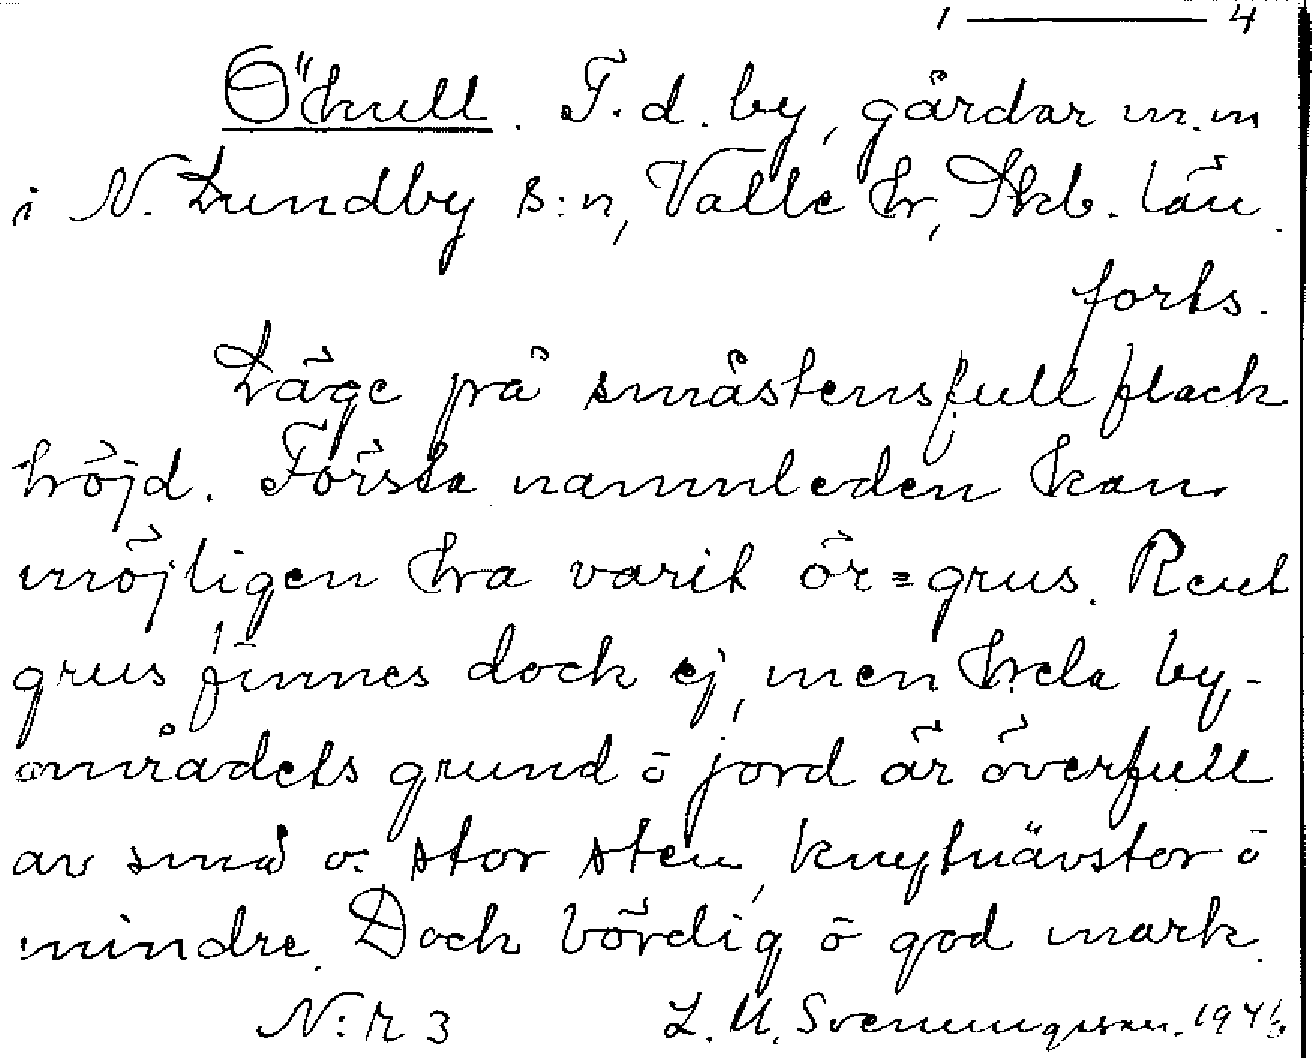 1 — 4
Öhull. F.d. by, gårdar m.m
i N. Lundby s:n, Valle hr, Skb. län.
forts.
Läge på småstensfull flack
höjd. Första namnleden kan
möjligen ha varit ör = grus. Rent
grus finnes dock ej, men hela by-
områdets grund o jord är överfull
av små o. stor sten, knytnävstor o
mindre. Dock bördig o god mark.
N:r 3 L. M. Svenungsson. 194